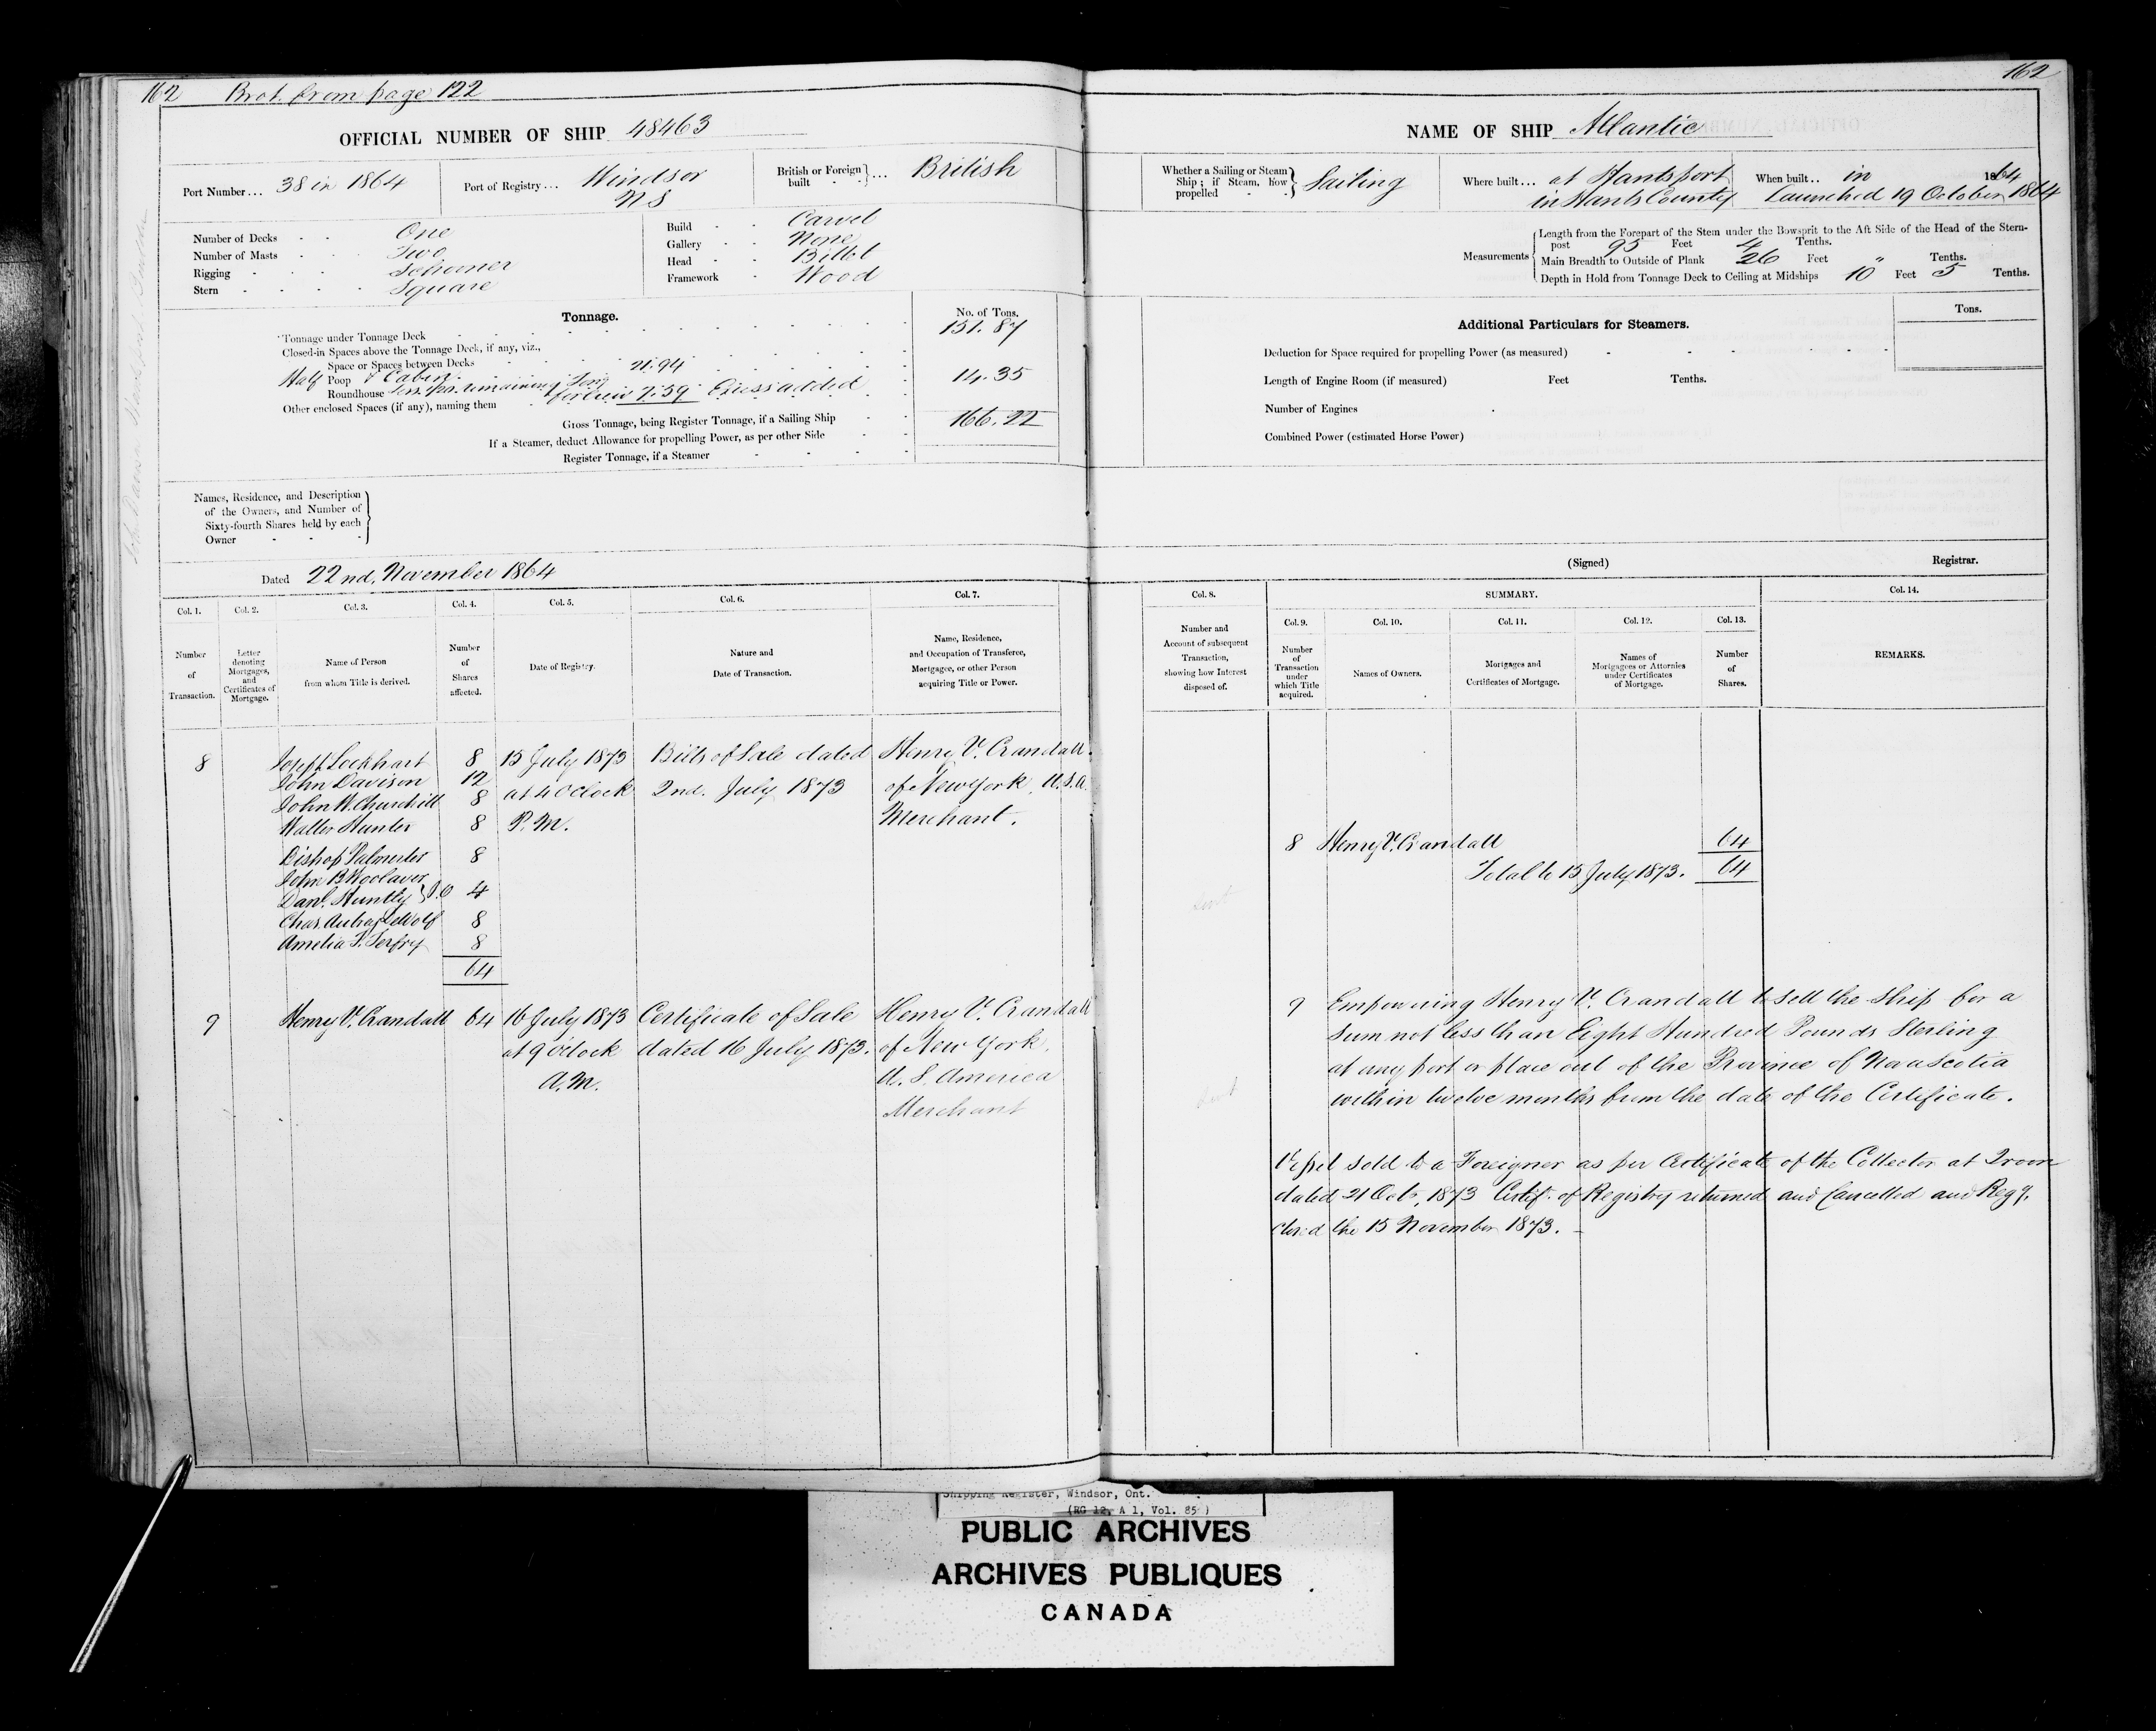 162 Brot. from page 122
OFFICIAL NUMBER OF SHIP 48463
Port Number... 38 in 1864
Port of Registry... Windsor
N S
British or Foreign built - - } ... British
Number of Decks - - One
Number of Masts - - Two
Rigging - - Schooner
Stern - - Square
Build - - Carvel
Gallery - - None
Head - - Billet
Framework - Wood
Tonnage.
No. of Tons.
Tonnage under Tonnage Deck 151.87
Closed-in Spaces above the Tonnage Deck, if any, viz.,
Space or Spaces between Decks 21.94
Half Poop & Cabin
Roundhouse for crew 7.59 Excess added 14.35
Other enclosed Spaces (if any), naming them
Gross Tonnage, being Register Tonnage, if a Sailing Ship 166.22
If a Steamer, deduct Allowance for propelling Power, as per other Side
Register Tonnage, if a Steamer
Names, Residence, and Description
of the Owners, and Number of
Sixty-fourth Shares held by each
Owner
Dated 22nd. November 1864
Col. 1. Col. 2. Col. 3. Col. 4. Col. 5. Col. 6. Col. 7.
Number of Transaction.
Letter denoting Mortgages, and Certificates of Mortgage.
Name of Person from whom Title is derived.
Number of Shares affected.
Date of Registry.
Nature and Date of Transaction.
Name, Residence, and Occupation of Transferee, Mortgagee, or other Person acquiring Title or Power.
8 Lockhart 8 15 July 1873 Bills of Sale dated Henry V. Crandall
John Davison 12 at 4 OClock 2nd. July 1873 of New York, U.S.A.
John W. Churchill 8
Walter Hunter 8 P.M. Merchant.
Bishop Palmerter 8
John B Woolaver
Danl. Huntly } J.O 4
Chas. Aubrey DeWolf 8
Amelia 8
64
9 Henry V. Crandall 64 16 July 1873 Certificate of Sale Henry V. Crandall
at 9 oClock dated 16 July 1873. of New York,
A.M. U. S. America
Merchant
162
NAME OF SHIP Atlantic
Whether a Sailing or Steam Ship; if Steam, how propelled - - } Sailing
Where built... at Hantsport
in Hants County
When built.. in 1864
Launched 19 October 1864
Measurements
Length from the Forepart of the Stem under the Bowsprit to the Aft Side of the Head of the Stern-
post 95 Feet 4 Tenths.
Main Breadth to Outside of Plank 26 Feet " Tenths.
Depth in Hold from Tonnage Deck to Ceiling at Midships 10 Feet 5 Tenths.
Additional Particulars for Steamers.
Tons.
Deduction for Space required for propelling Power (as measured)
Length of Engine Room (if measured) Feet Tenths.
Number of Engines
Combined Power (estimated Horse Power)
(Signed) Registrar.
Col. 8. SUMMARY. Col. 14.
Col. 9. Col. 10. Col. 11. Col. 12. Col. 13.
Number and Account of subsequent Transaction, showing how Interest disposed of.
Number of Transaction under which Title acquired.
Names of Owners.
Mortgages and Certificates of Mortgage.
Names of Mortgagees or Attornies under Certificates of Mortgage.
Number of Shares.
REMARKS.
8 Henry V. Crandall 64
Total to 15 July 1873. 64
9 Empowering Henry V. Crandall to sell the ship for a
sum not less than Eight Hundred Pounds Sterling
at any port or place out of the Province of Nova Scotia
within twelve months from the date of the Certificate.
Vessel sold to a Foreigner as per Certificate of the Collector at Troon
dated 21 Oct. 1873 Certif. of Registry returned and Cancelled and Regy.
closed the 15 November 1873. -
Shipping Register, Windsor, Ont.
(RG 12, A 1, Vol. 85)
PUBLIC ARCHIVES
ARCHIVES PUBLIQUES
CANADA